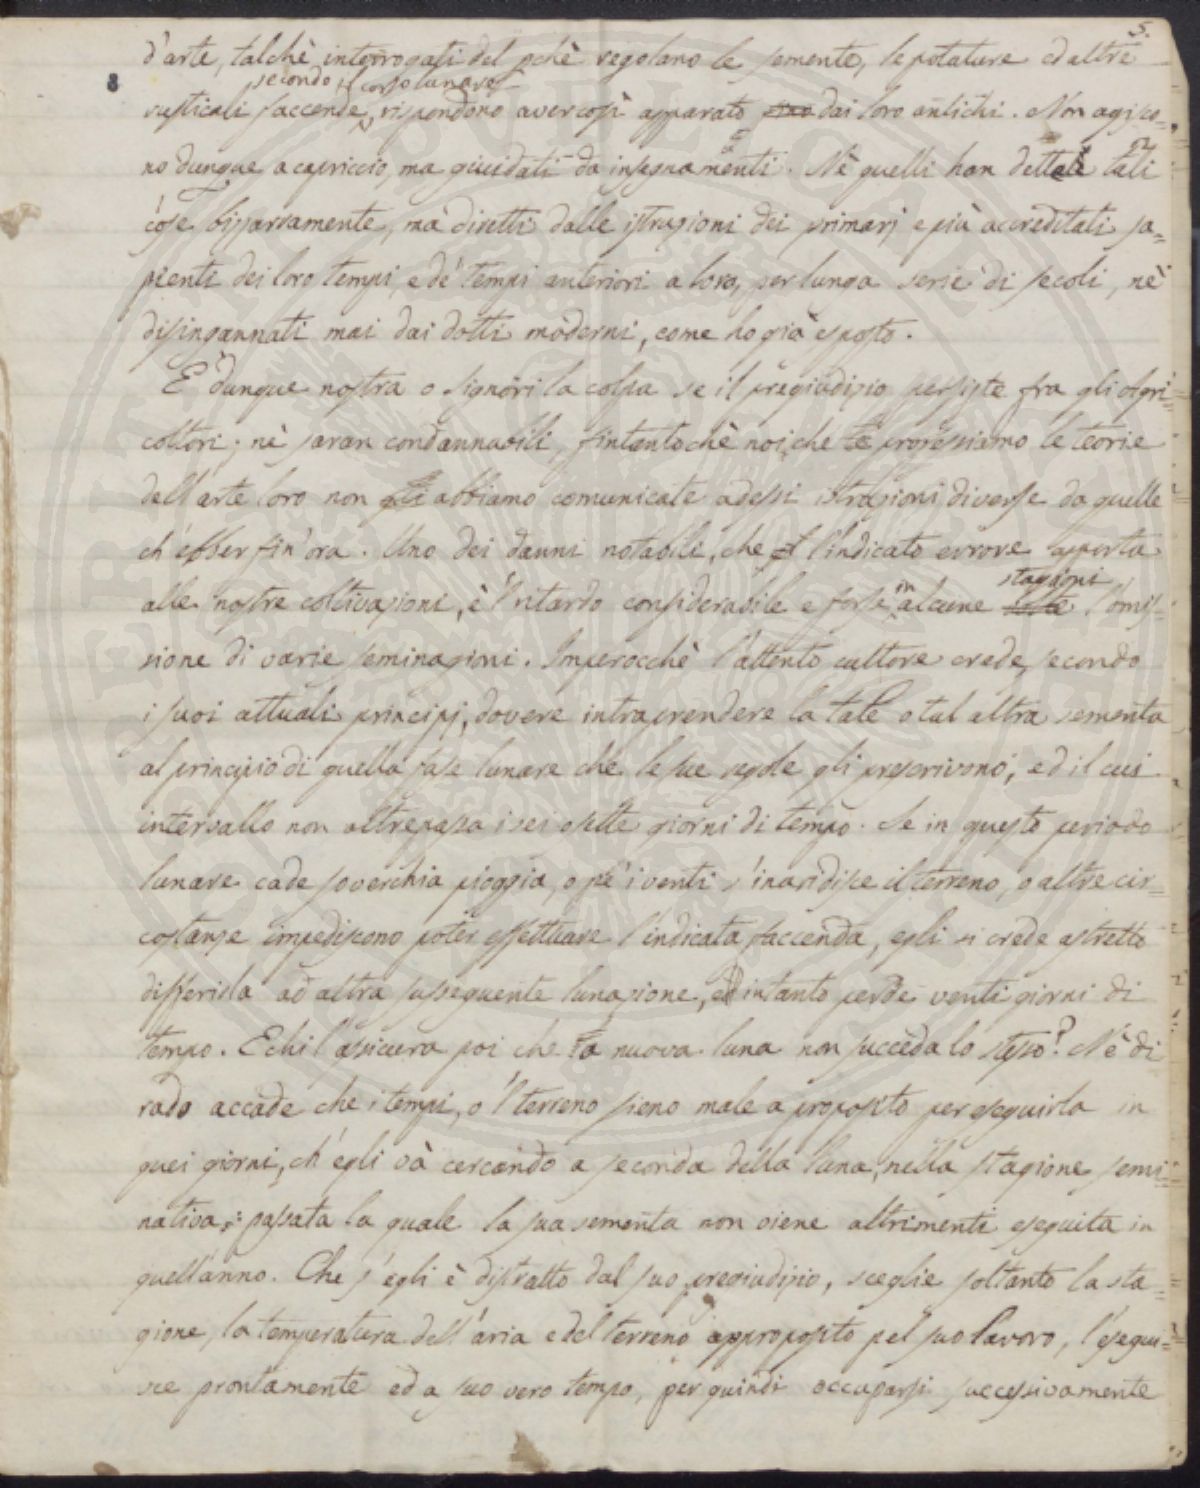 5.
d'arte, talchè interrogati del pchè regolano le semente, le potature ed altre
secondo il corso lunare
rusticali faccende, rispondono aver così apparato fino dai loro antichi. Non agisco=
no dunque a capriccio, ma guidati da insegnamenti. Nè quelli han dettate tali
cose bizzarramente, ma diretti dalle istruzioni dei primarj e più accreditati sa=
pienti dei loro tempi, e de' tempi anteriori a loro, per lunga serie di secoli, nè
disingannati mai dai dotti moderni, come ho già esposto.
E' dunque nostra o Signori la colpa se il pregiudizio persiste fra gli Agri=
coltori; nè saran condannabili, fintantochè noi, che professiamo le teorie
dell'arte loro non gli abbiamo comunicate adessi istruzioni diverse da quelle
ch'ebber fin'ora. Uno dei danni notabili, che l'indicato errore apporta
stagioni
alle nostre coltivazioni, è 'l ritardo considerabile e forse in alcune l'omis=
sione di varie seminagioni. Imperocchè l'attento cultore crede, secondo
i suoi attuali principj, dovere intraprendere la tale o tal altra sementa
al principio di quella fase lunare che le sue regole gli prescrivono, ed il cui
intervallo non oltrepassa i sei o sette giorni di tempo. Se in questo periodo
lunare cade soverchia pioggia, o pe' i venti s'inaridisce il terreno, o altre cir=
costanze impediscono poter effettuare l'indicata faccenda, egli si crede astretto
differirla ad altra susseguente lunazione, ed intanto perde venti giorni di
tempo. E chi l'assicura poi che la nuova luna non succeda lo stesso? Nè di
rado accade che i tempi, o 'l terreno sieno male a proposito per eseguirla in
quei giorni, ch'egli và cercando a seconda della luna, nella stagione semi=
nativa; passata la quale la sua sementa non viene altrimenti eseguita in
quell'anno. Che s'egli è distratto dal suo pregiudizio, sceglie soltanto la sta=
gione, la temperatura dell'aria e del terreno approposito pel suo lavoro, l'esegui=
sce prontamente ed a suo vero tempo, per quindi occuparsi successivamente